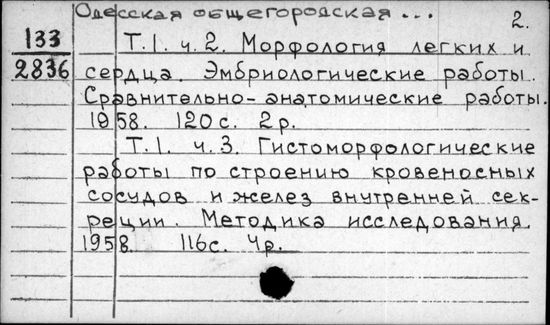 Одесская общегородская ... 2.
133
2836
Т.1. ч.2. Морфология легких и
сердца. Эмбриологические работы.
Сравнительно-анатомические работы.
1958. 120с. 2р.
Т.1. ч.3. Гистоморфологические
работы по строению кровеносных
сосудов и желез внутренней сек-
реции. Методика исследования.
1958. 116с. 4р.